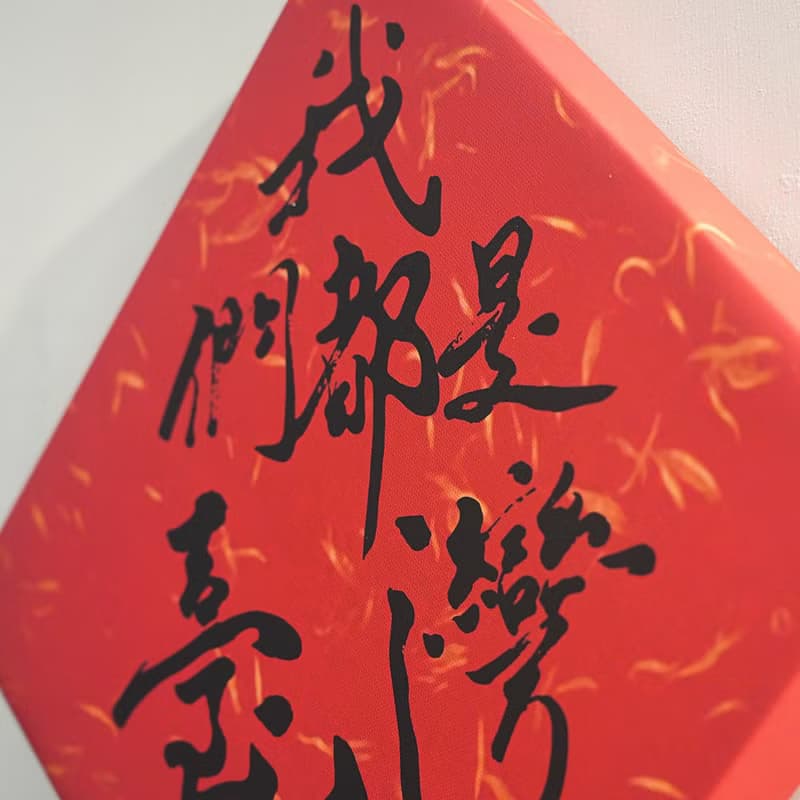 我
們都是
臺灣